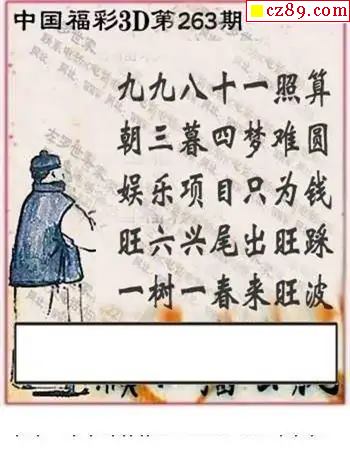 cz89.com
中国福彩3D第263期
九九八十一照算
朝三暮四梦难圆
娱乐项目只为钱
旺六兴尾出旺踩
一树一春来旺波